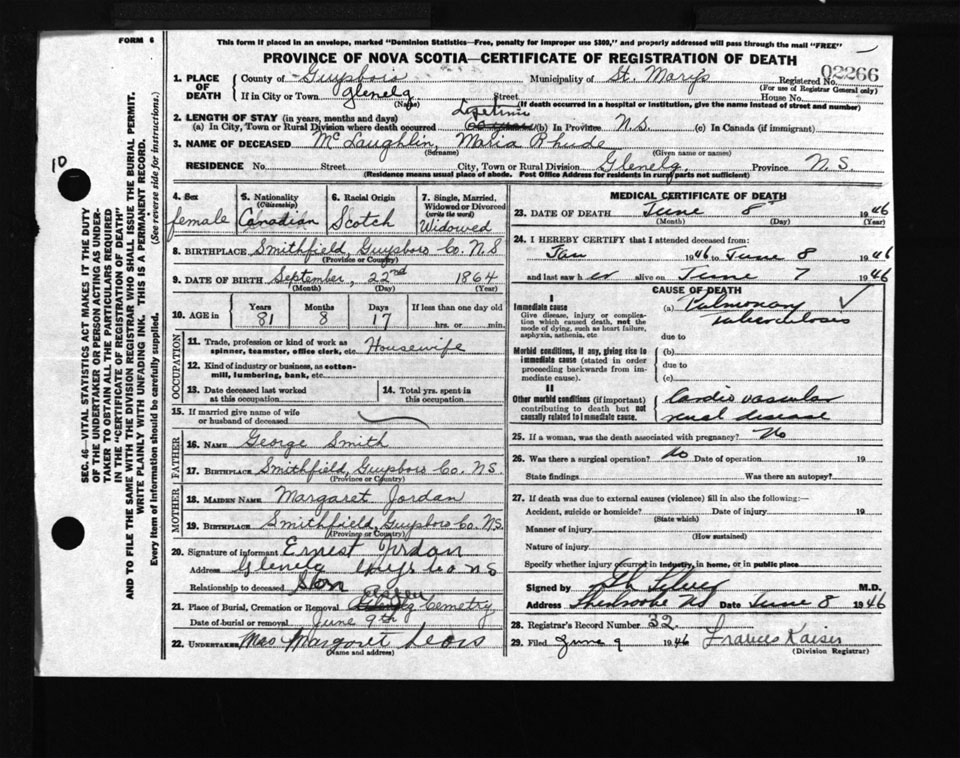 FORM 6
This form if placed in an envelope, marked "Dominion Statistics—Free, penalty for improper use $300," and properly addressed will pass through the mail "FREE"
PROVINCE OF NOVA SCOTIA—CERTIFICATE OF REGISTRATION OF DEATH
02266
1. PLACE OF DEATH County of Guysboro Municipality of St. Marys Registered No.
(For use of Registrar General only)
If in City or Town Glenelg Street House No.
(Name) (If death occurred in a hospital or institution, give the name instead of street and number)
2. LENGTH OF STAY (in years, months and days) Lifetime
(a) In City, Town or Rural Division where death occurred (b) In Province N.S. (c) In Canada (if immigrant)
3. NAME OF DECEASED McLaughlin, Maria Rhude
(Surname) (Given name or names)
RESIDENCE No. Street City, Town or Rural Division Glenelg Province N.S.
(Residence means usual place of abode. Post Office Address for residents in rural parts not sufficient)
4. Sex female
5. Nationality (Citizenship) Canadian
6. Racial Origin Scotch
7. Single, Married, Widowed or Divorced (write the word) Widowed
8. BIRTHPLACE Smithfield, Guysboro Co. N.S
(Province or Country)
9. DATE OF BIRTH September, 22nd 1864
(Month) (Day) (Year)
10. AGE in Years 81 Months 8 Days 17 If less than one day old hrs. or min.
OCCUPATION
11. Trade, profession or kind of work as spinner, teamster, office clerk, etc. Housewife
12. Kind of industry or business, as cotton-mill, lumbering, bank, etc.
13. Date deceased last worked at this occupation
14. Total yrs. spent in this occupation
15. If married give name of wife or husband of deceased
FATHER
16. NAME George Smith
17. BIRTHPLACE Smithfield, Guysboro Co. N.S.
(Province or Country)
MOTHER
18. MAIDEN NAME Margaret Jordan
19. BIRTHPLACE Smithfield, Guysboro Co. N.S.
(Province or Country)
20. Signature of informant Ernest Jordan
Address Glenelg Guys Co N S
Relationship to deceased Son
21. Place of Burial, Cremation or Removal Cemetry
Date of burial or removal June 9th
22. UNDERTAKER Mrs Margaret
(Name and address)
MEDICAL CERTIFICATE OF DEATH
23. DATE OF DEATH June 8 1946
(Month) (Day) (Year)
24. I HEREBY CERTIFY that I attended deceased from:
Jan 1946 to June 8 1946
and last saw her alive on June 7 1946
CAUSE OF DEATH
I
Immediate cause (a) Pulmonary tuberculosis
Give disease, injury or complication which caused death, not the mode of dying, such as heart failure, asphyxia, asthenia, etc
due to
Morbid conditions, if any, giving rise to immediate cause (stated in order proceeding backwards from immediate cause). (b)
due to
(c)
II
Other morbid conditions (if important) contributing to death but not causally related to immediate cause. Cardio vascular renal disease
25. If a woman, was the death associated with pregnancy? No
26. Was there a surgical operation? No Date of operation 19
State findings Was there an autopsy?
27. If death was due to external causes (violence) fill in also the following:—
Accident, suicide or homicide? Date of injury 19
(State which)
Manner of injury
(How sustained)
Nature of injury
Specify whether injury occurred in industry, in home, or in public place
Signed by M.D.
Address Sherbrooke NS Date June 8 1946
28. Registrar's Record Number 32
29. Filed June 9 1946 Frances Kaiser
(Division Registrar)
10
SEC. 46—VITAL STATISTICS ACT MAKES IT THE DUTY
OF THE UNDERTAKER OR PERSON ACTING AS UNDER-
TAKER TO OBTAIN ALL THE PARTICULARS REQUIRED
IN THE "CERTIFICATE OF REGISTRATION OF DEATH"
AND TO FILE THE SAME WITH THE DIVISION REGISTRAR WHO SHALL ISSUE THE BURIAL PERMIT.
WRITE PLAINLY WITH UNFADING INK. THIS IS A PERMANENT RECORD.
Every item of information should be carefully supplied. (See reverse side for instructions.)